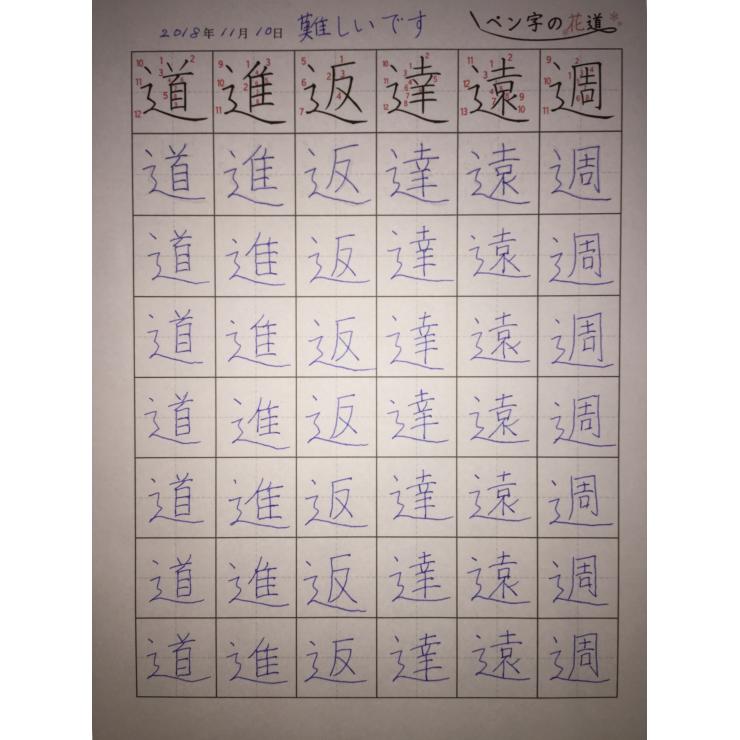 2018年11月10日 難しいです ペン字の花道
道 進 返 達 遠 週
道 進 返 達 遠 週
道 進 返 達 遠 週
道 進 返 達 遠 週
道 進 返 達 遠 週
道 進 返 達 遠 週
道 進 返 達 遠 週
道 進 返 達 遠 週